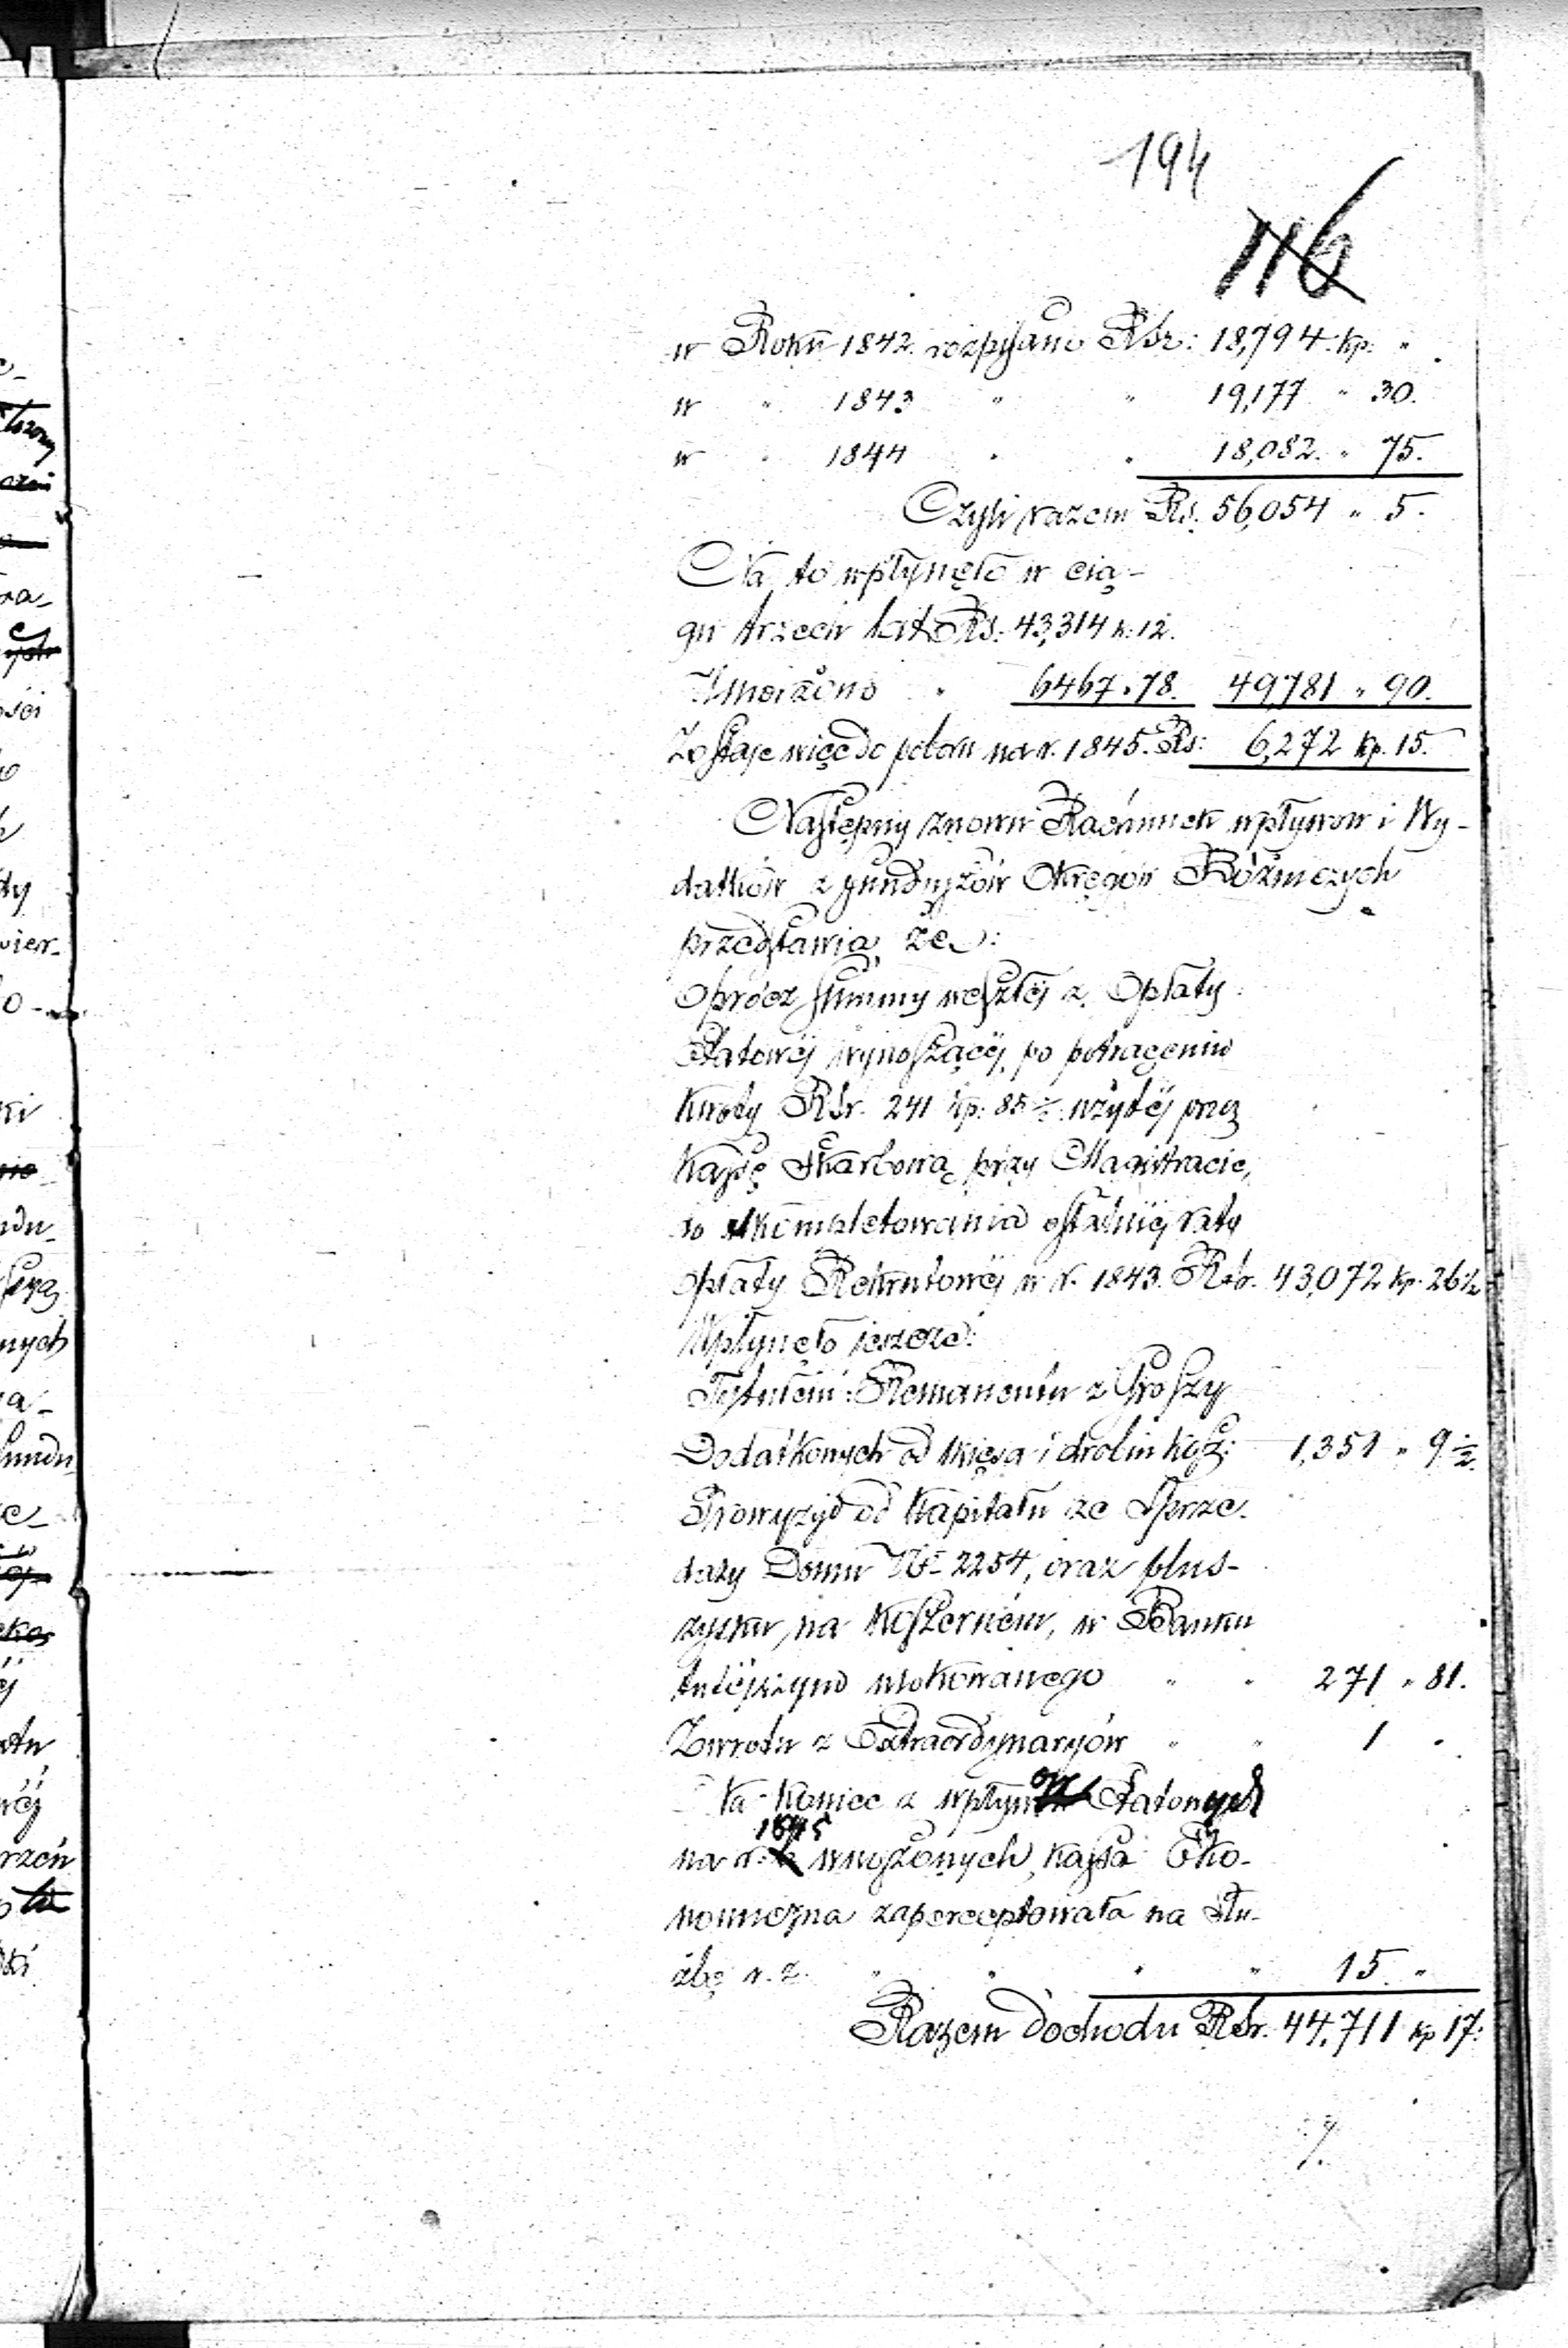 194
116
w Roku 1842. rozpisano Rsr: 18,794. kp: "
w " 1843 " " 19,177 " 30.
w " 1844 " " 18,082. " 75.
Czyli razem Rs. 56,054 " 5.
Na to wpłynęło w cią-
gu trzech lat Rs: 43,314 k: 12.
Umorzono " 6467 " 78. 49,781 " 90.
Zostaje więc do poboru na r. 1845. Rs: 6,272 kp. 15.
Następny znowu Rachunek wpływów i Wy-
datków z funduszów Okręgów Bóżniczych
przedstawia, że:
Oprócz summy weszłéj z Opłaty
Etatowéj wynoszącéj, po potrąceniu
kwoty Rsr. 241 kp: 85 ½ użytéj przez
Kassę Skarbową przy Magistracie,
do skompletowania ostatniéj raty
opłaty Rekrutowéj w r. 1843. Rsr. 43,072 kp. 26½
Wpłynęło jeszcze:
Tytułem: Remanentu z Groszy
Dodatkowych od mięsa i drobiu kosz: 1,351 " 9 ½.
Prowizyi od Kapitału ze Sprze-
daży Domu No 2254, oraz plus-
zysku na Koszernem, w Banku
tutéjszym ulokowanego " " 271 " 81.
Zwrotu z Extraordynaryów " " 1 "
Na koniec z wpływów Etatowych
1845
na r. wnoszonych, kassa Eko-
nomiczna zapercepto­wała na słu-
żbę r. z. " " " " 15. "
Razem dochodu Rsr. 44,711 kp 17: